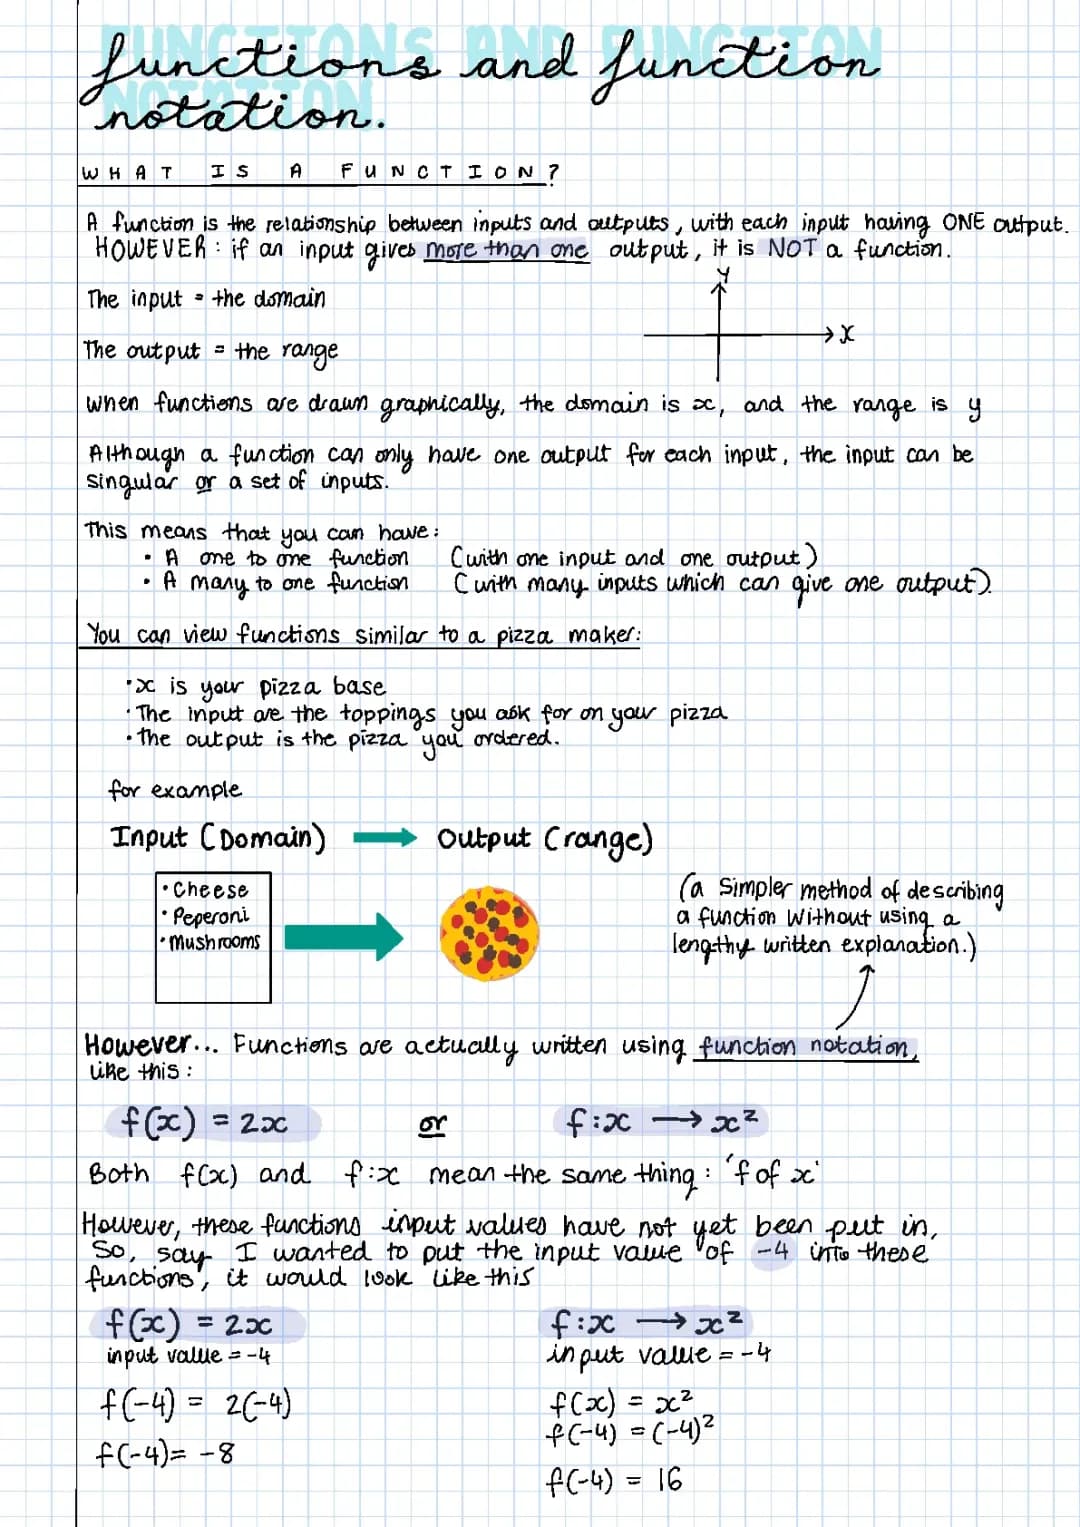 FUNCTIONS AND FUNCTION
NOTATION
functions and function
notation.
WHAT IS A FUNCTION?
A function is the relationship between inputs and outputs, with each input having ONE output.
HOWEVER: if an input gives more than one output, it is NOT a function.
y
The input = the domain
x
The output = the range
When functions are drawn graphically, the domain is x, and the range is y
Although a function can only have one output for each input, the input can be
singular or a set of inputs.
This means that you can have:
• A one to one function (with one input and one output)
• A many to one function (with many inputs which can give one output).
You can view functions similar to a pizza maker:
• x is your pizza base
• The input are the toppings you ask for on your pizza
• The output is the pizza you ordered.
for example
Input (Domain) → Output (range)
• Cheese
• Peperoni
• Mushrooms
(a simpler method of describing
a function without using a
lengthy written explanation.)
However... Functions are actually written using function notation,
like this:
f(x) = 2x or f:x → x²
Both f(x) and f:x mean the same thing: 'f of x'
However, these functions input values have not yet been put in,
So, say I wanted to put the input value of -4 into these
functions, it would look like this
f(x) = 2x
input value = -4
f(-4) = 2(-4)
f(-4) = -8
f:x → x²
input value = -4
f(x) = x²
f(-4) = (-4)²
f(-4) = 16